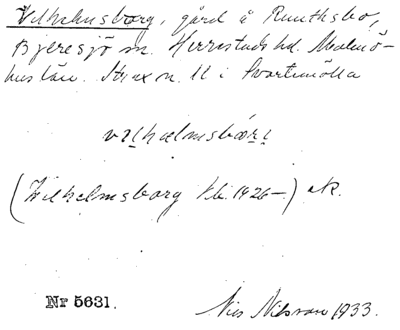 Vilhelmsborg, gård å Ruuthsbo,
Bjeresjö sn. Herrestads hd. Malmö-
hus län. Strax n. U i Svartemölla
vɪlhælmsbɑ́rɪ
(Wilhelmsborg Kb. 1926–) ak.
Nr 5631.
Nils Nilsson 1933.